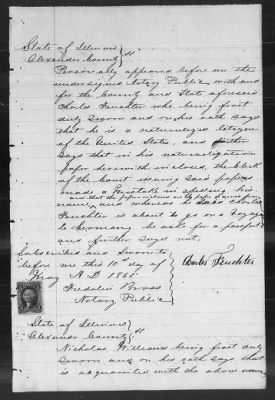 State of Illinois } ss
Alexander County }
Personally appeared before me the
undersigned Notary Public with and
for the County and State aforesaid
Charles Feuchter who being first
duly sworn and on his oath says
that he is a naturalized Citizen
of the United States, and further
says that in his naturalization
paper herewith inclosed the clerk
of the Court issuing said papers
made a mistake in spelling his
name, and that
and whereas he said Charles
Feuchter is about to go on a voyage
to Germany he asks for a passport
and further says not.
Subscribed and sworn to
before me this 10th day of
May A.D. 1865
Charles Feuchter
Fredolin Bross
Notary Public
State of Illinois } ss
Alexander County }
Nicholas Williams being first duly
sworn and on his oath says that
is acquainted with the above named